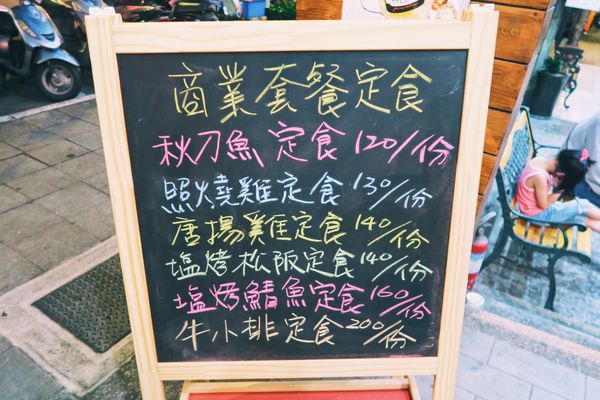 商業套餐定食
秋刀魚定食 120/份
照燒雞定食 130/份
唐揚雞定食 140/份
塩烤松阪定食 140/份
塩烤鯖魚定食 160/份
牛小排定食 200/份